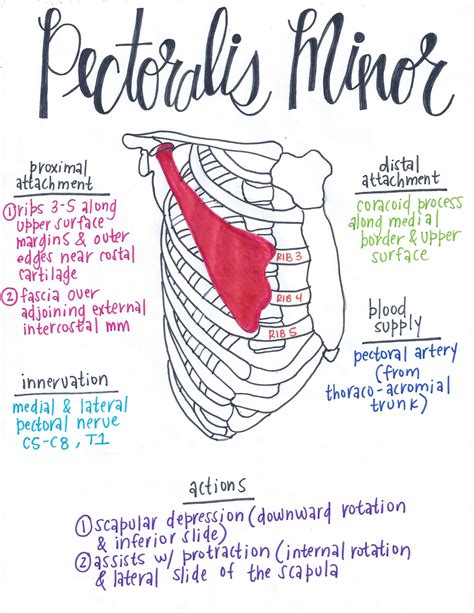 Pectoralis Minor
proximal
attachment
① ribs 3-5 along
upper surface
margins & outer
edges near costal
cartilage
② fascia over
adjoining external
intercostal mm
innervation
medial & lateral
pectoral nerve
C5-C8, T1
RIB 3
RIB 4
RIB 5
distal
attachment
coracoid process
along medial
border & upper
surface
blood
supply
pectoral artery
(from
thoraco-acromial
trunk)
actions
① scapular depression (downward rotation
& inferior slide)
② assists w/ protraction (internal rotation
& lateral slide of the scapula